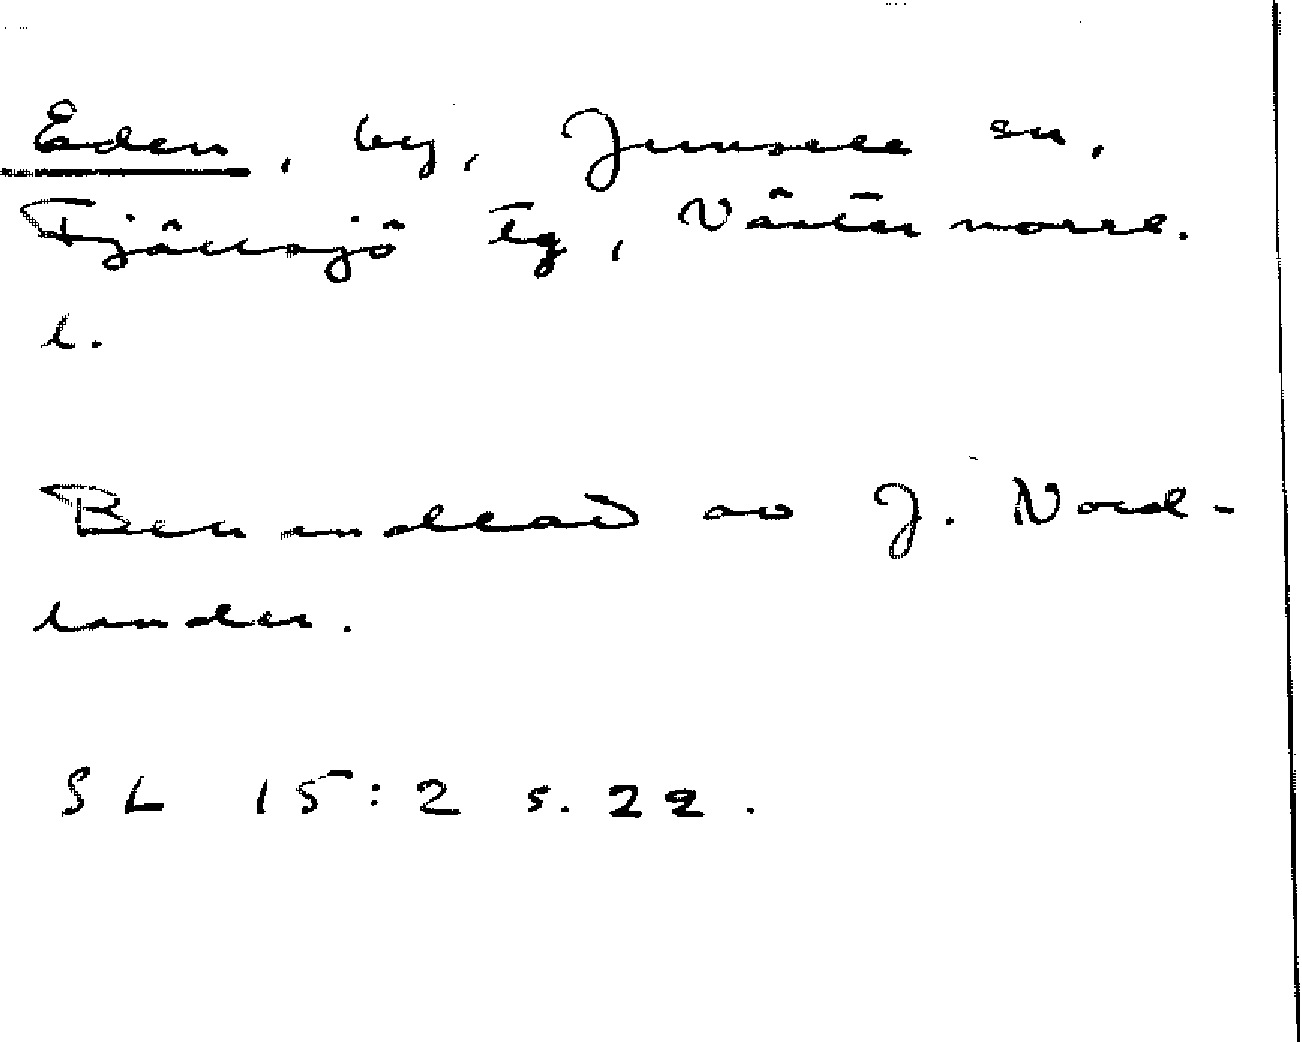 Eden, by, Junsele sn,
Fjällsjö tg, Västernorrl.
l.
Behandlad av J. Nord-
lander.
SL 15:2 s. 22.